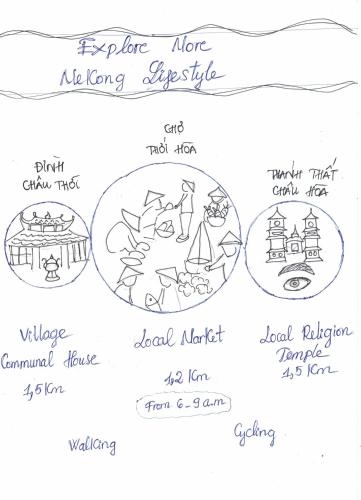 Explore More
MeKong Lifestyle
ĐÌNH
CHÂU THỚI
CHỢ
THỚI HÒA
THÁNH THẤT
CHÂU HÒA
Village
Communal House
1,5 Km
Local Market
1,2 Km
From 6_9 a.m
Local Religion
Temple
1,5 Km
Walking
Cycling